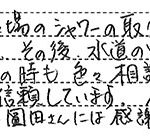 場のシャワーの取
その後、水道の
の時も色々相談
信頼しています。
園田さんには感謝